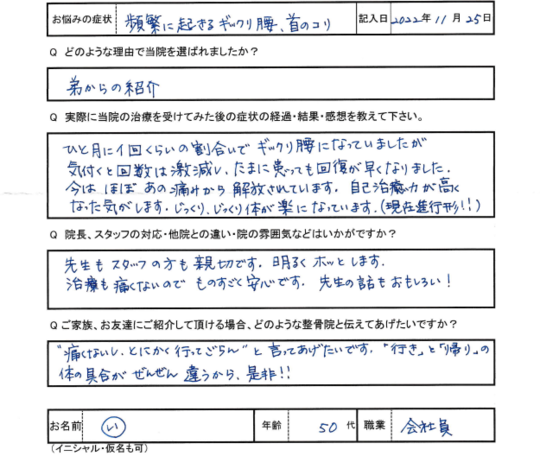 お悩みの症状 頻繁に起きるギックリ腰、首のコリ 記入日 2022年 11月 25日
Q どのような理由で当院を選ばれましたか?
弟からの紹介
Q 実際に当院の治療を受けてみた後の症状の経過・結果・感想を教えて下さい。
ひと月に1回くらいの割合いで ギックリ腰になっていましたが
気付くと回数は激減し、たまに患っても回復が早くなりました。
今は ほぼ あの痛みから 解放されています。自己治癒力が高く
なった気がします。じっくり、じっくり体が楽になっています。(現在進行形!!)
Q 院長、スタッフの対応・他院との違い・院の雰囲気などはいかがですか?
先生も スタッフの方も親切です。明るく ホッとします。
治療も痛くないので ものすごく安心です。 先生の話もおもしろい!
Q ご家族、お友達にご紹介して頂ける場合、どのような整骨院と伝えてあげたいですか?
"痛くないし、とにかく行ってごらん"と 言ってあげたいです。"行き"と"帰り"の
体の具合が ぜんぜん 違うから、是非!!
お名前 い 年齢 50代 職業 会社員
(イニシャル・仮名も可)